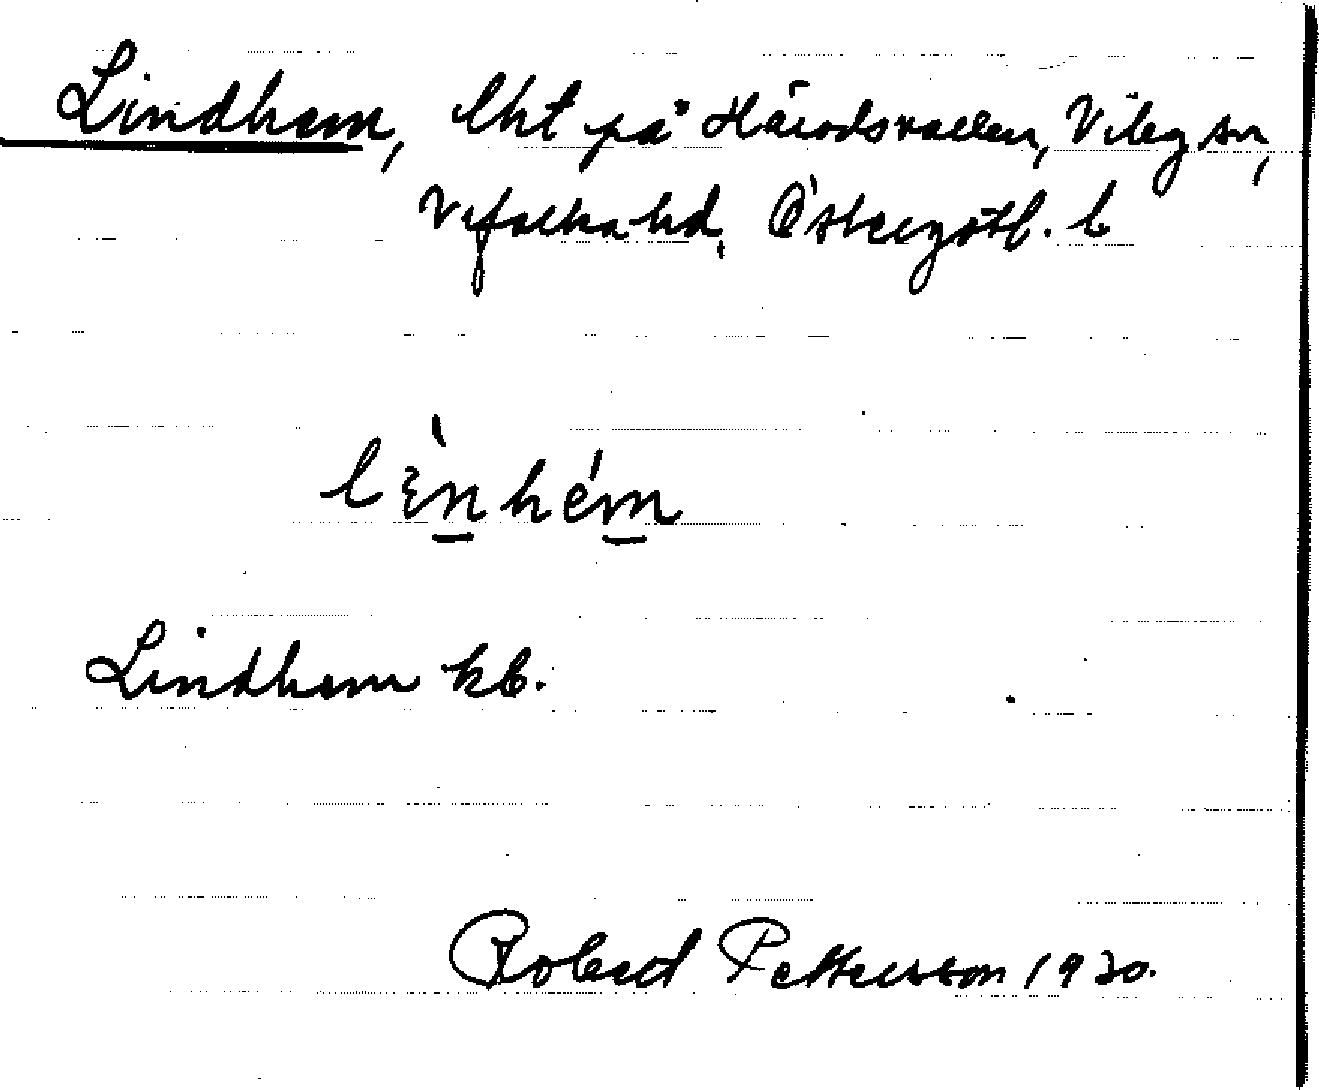 Lindhem, lht på Häradsvallen, Viby sn,
Vifolka hd, Östergötl. l
lìnhém
Lindhem kb.
Robert Pettersson 1930.